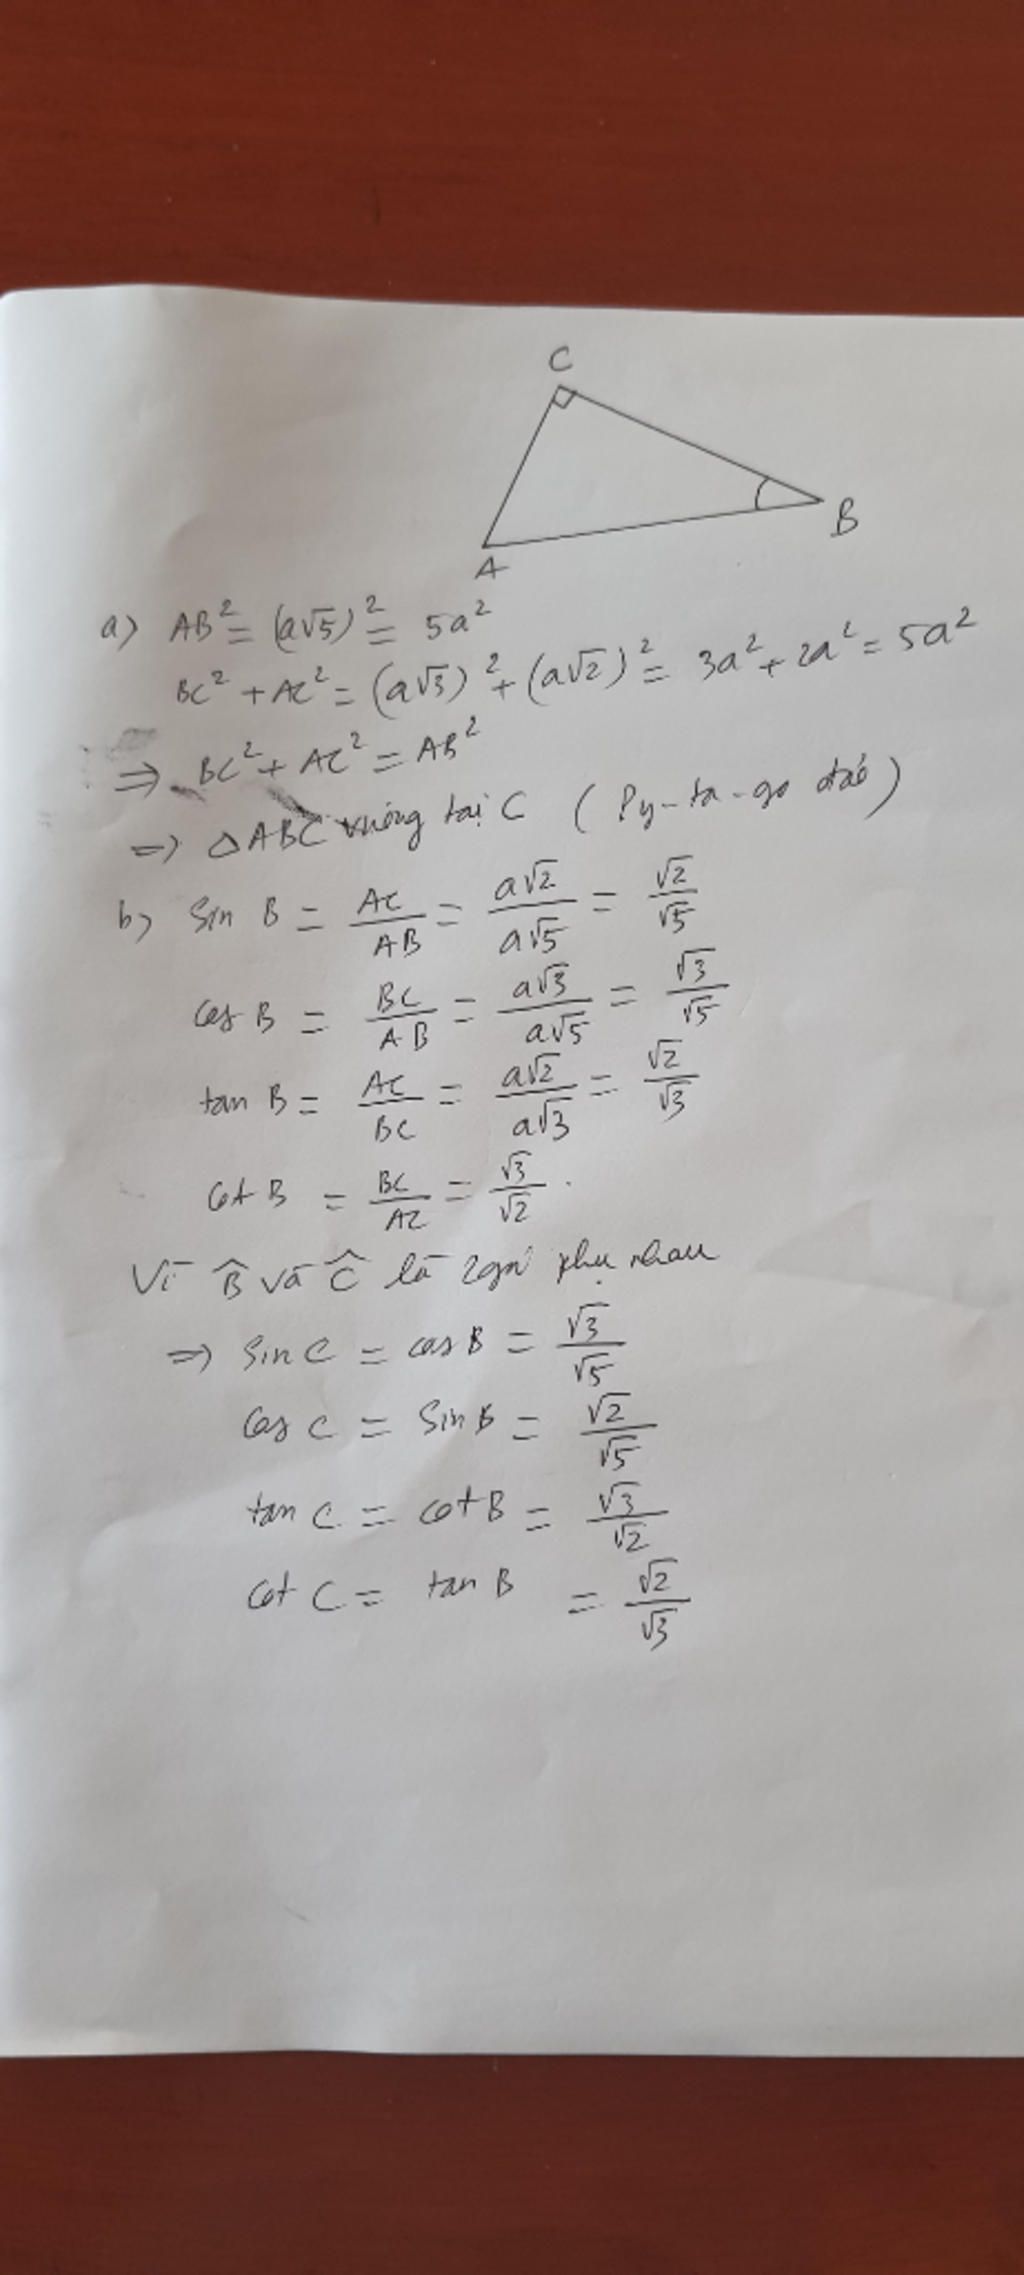 C
B
A
a) AB² = (a√5)² = 5a²
BC² + AC² = (a√3)² + (a√2)² = 3a² + 2a² = 5a²
⇒ BC² + AC² = AB²
⇒ △ABC vuông tại C ( Py-ta-go đảo )
b) Sin B = AC/AB = a√2/a√5 = √2/√5
cos B = BC/AB = a√3/a√5 = √3/√5
tan B = AC/BC = a√2/a√3 = √2/√3
cot B = BC/AC = √3/√2 .
Vì B̂ và Ĉ là 2 góc phụ nhau
⇒ Sin C = cos B = √3/√5
Cos C = Sin B = √2/√5
tan C = cot B = √3/√2
Cot C = tan B = √2/√3